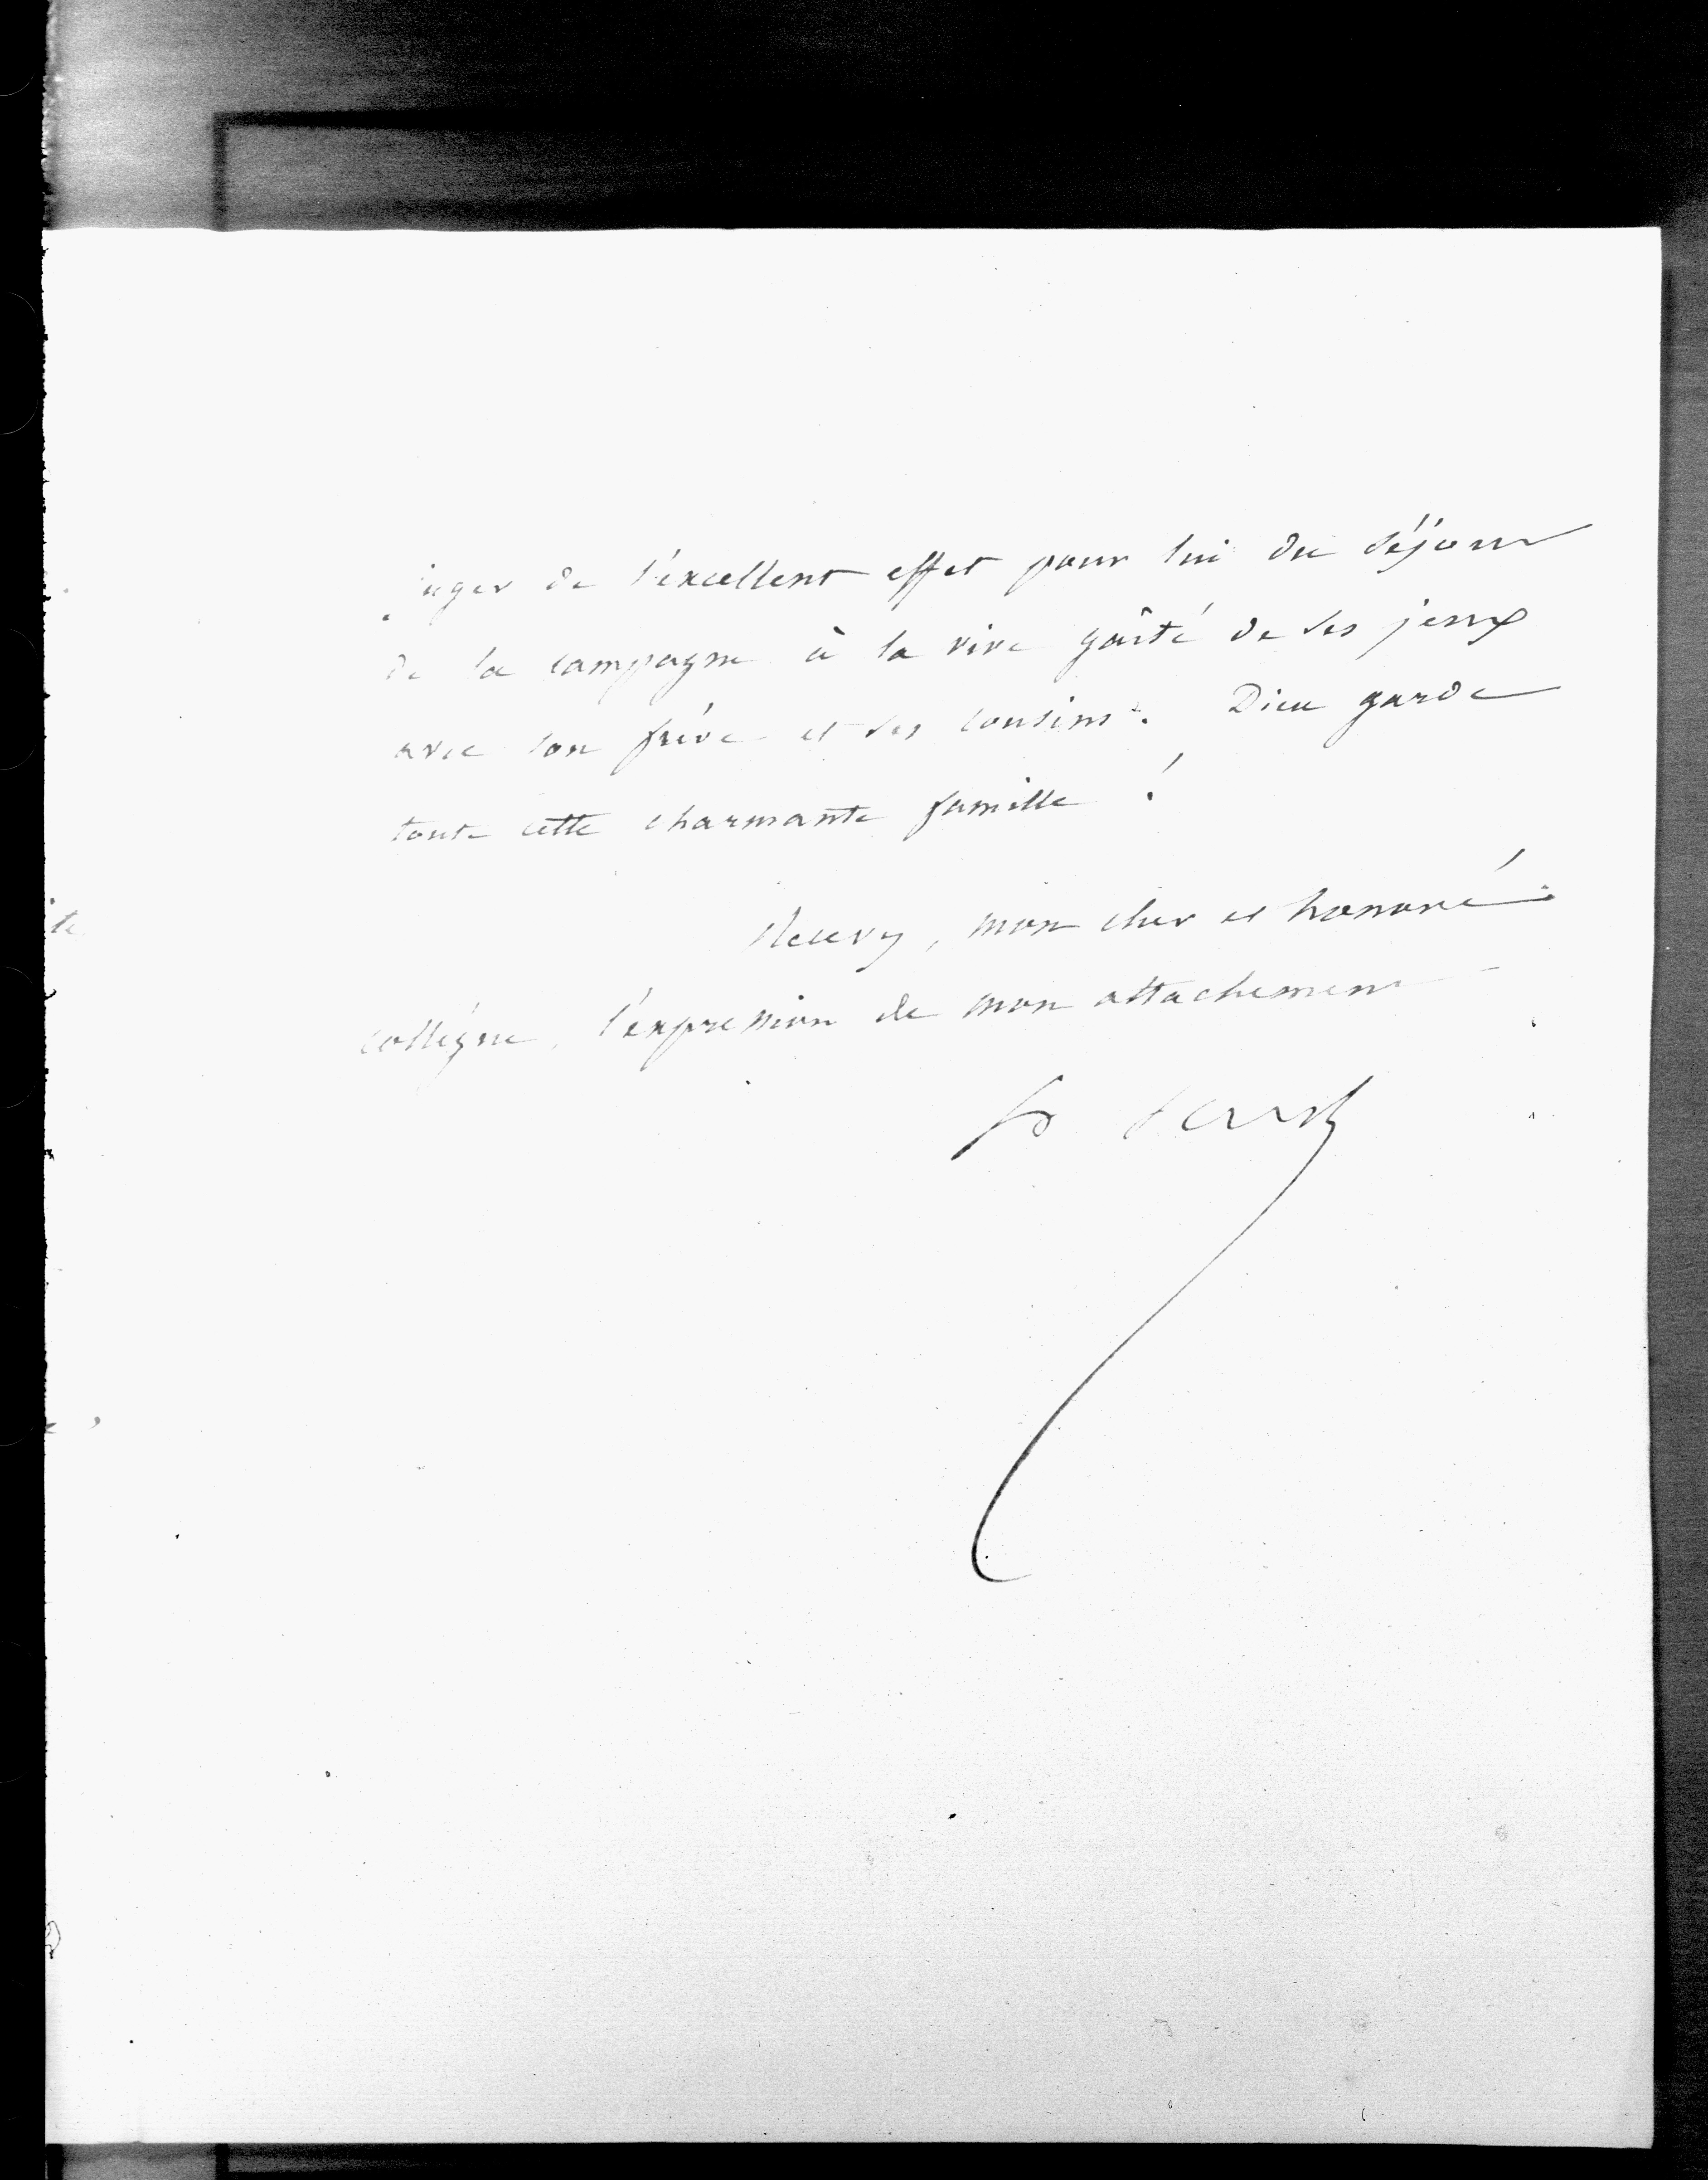 juger de l'excellent effet pour lui du séjour
de la campagne à la vive gaîté de ses jeux
avec son frère et ses cousins. Dieu garde
toute cette charmante famille !
Recevez, mon cher et honoré
collègue, l'expression de mon attachement